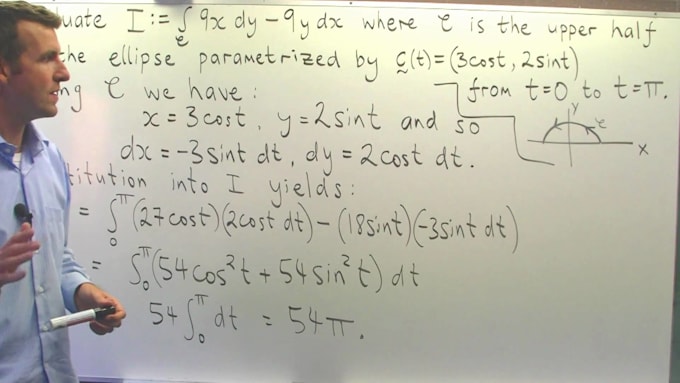 uate I := ∫_C 9x dy − 9y dx where C is the upper half
he ellipse parametrized by c(t) = (3cost, 2sint)
ng C we have: from t=0 to t=π.
x = 3cost, y = 2sint and so
y
C
x
dx = −3sint dt, dy = 2cost dt.
titution into I yields:
= ∫₀^π (27cost)(2cost dt) − (18sint)(−3sint dt)
= ∫₀^π (54cos²t + 54sin²t) dt
54 ∫₀^π dt = 54π.